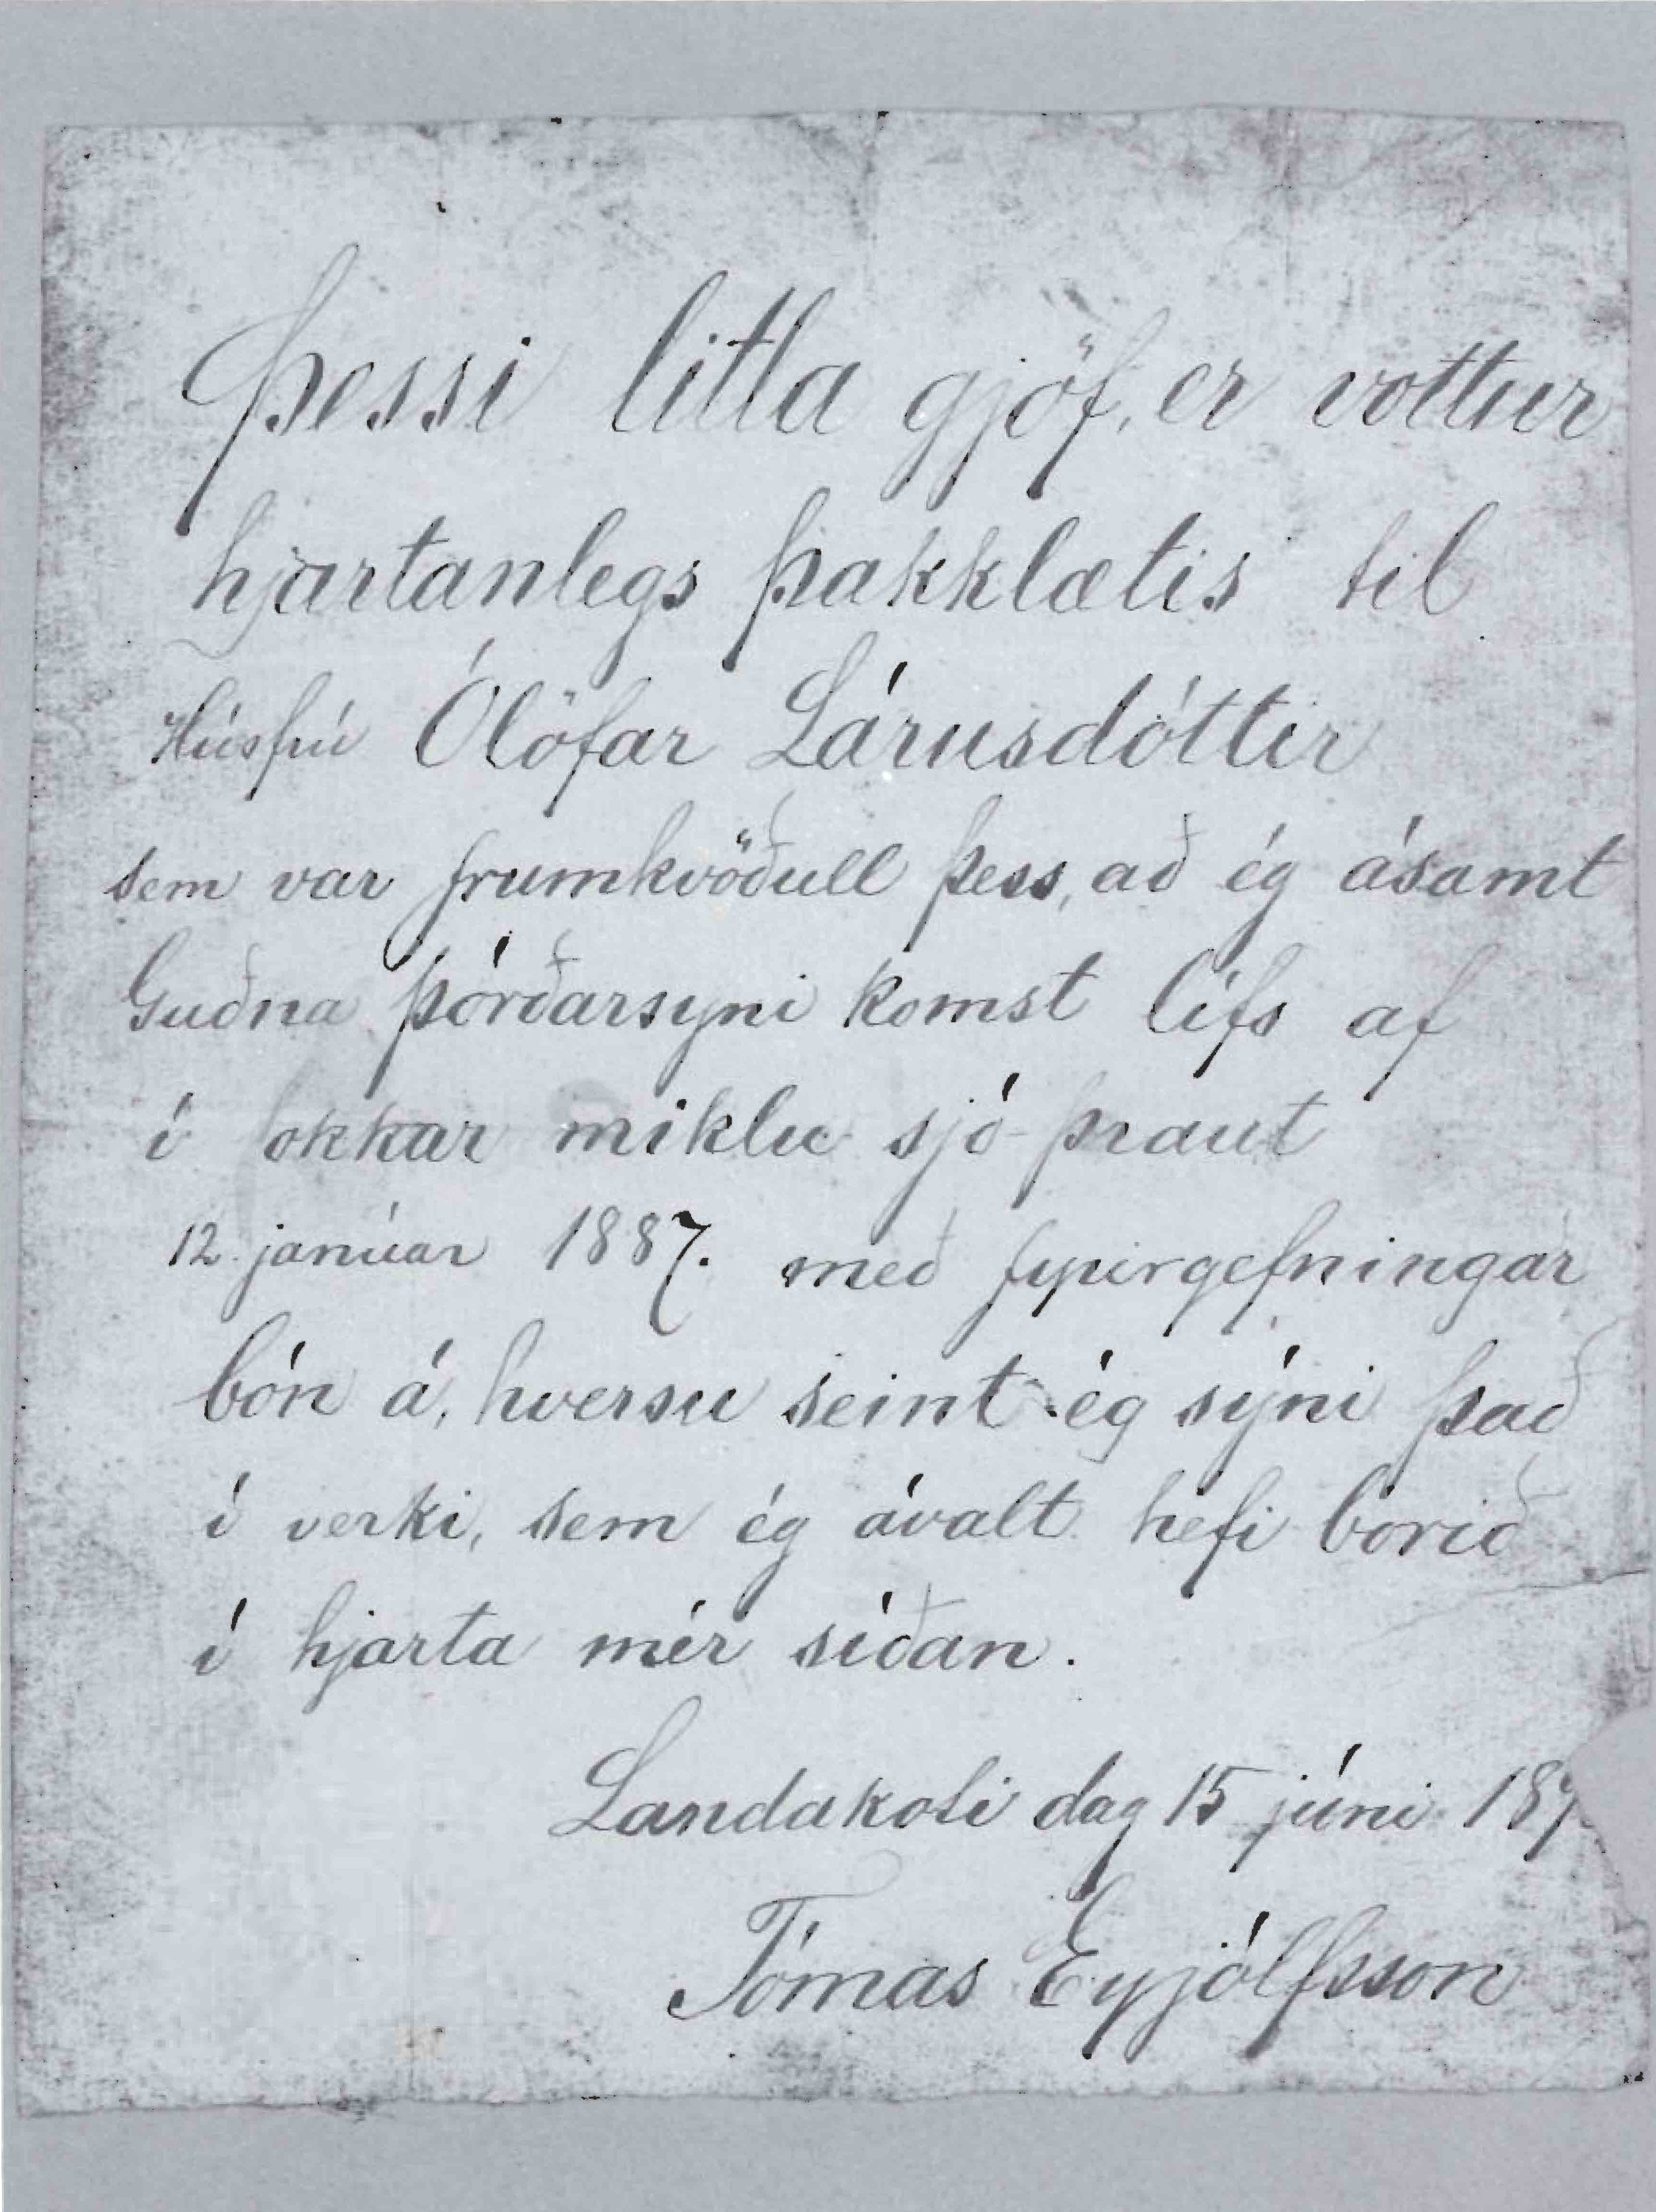 Þessi litla gjöf, er vottur
hjartanlegs þakklætis til
Húsfrú Ólöfar Lárusdóttir
sem var frumkvöðull þess, að ég ásamt
Guðna Þórðarsyni komst lífs af
í okkar miklu sjó-þraut
12. janúar 1887. með fyrirgefningar
bón á, hversu seint ég sýni það
í verki, sem ég ávalt hefi borið
í hjarta mér síðan.
Landakoti dag 15 júni
Tómas Eyjólfsson